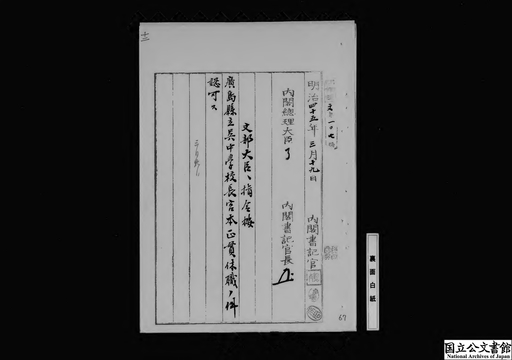 十二
文
一一七
明治四十五年三月十九日
内閣総理大臣
内閣書記官長
内閣書記官
文部大臣ヘ指令按
廣島縣立呉中学校長宮本正貫休職ノ件
認可ス
67
裏面白紙
国立公文書館
National Archives of Japan